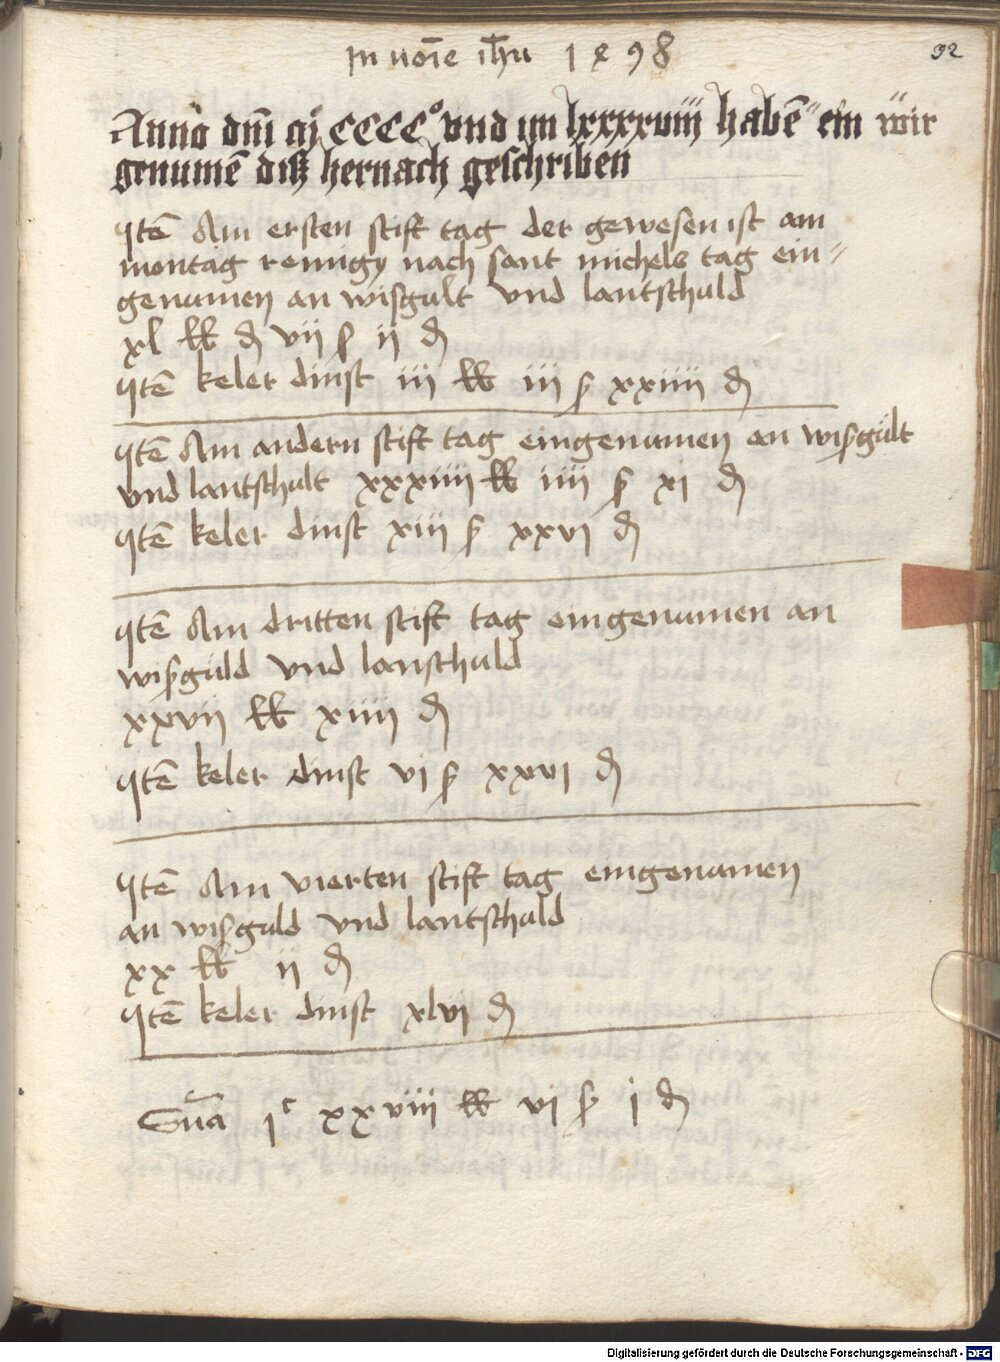 In noīe ihū 1498
92
Anno dm̄ mͦ cccc° vnd im lxxxxviij habē ein wir
genumē diß hernach geschriben
Itē Am ersten stift tag der gewesen ist am
montag remigy nach sant michels tag ein-
genumen an wisgult vnd lantschuld
xl lb ₰ vij ß ij ₰
Itē keler dinst iij lb iij ß xxiiij ₰
Itē Am andern stift tag eingenumen an wißgült
vnd lantschult xxxiiij lb iiij ß xj ₰
Itē keler dinst xiij ß xxvj ₰
Itē Am dritten stift tag eingenumen an
wißguld vnd lanschuld
xxvij lb xiiij ₰
Itē keler dinst vj ß xxvj ₰
Itē Am vierten stift tag eingenumen
an wißguld vnd lantschuld
xx lb ij ₰
Itē keler dinst xlvj ₰
Sūa jᶜ xxviij lb vj ß j ₰
Digitalisierung gefördert durch die Deutsche Forschungsgemeinschaft - DFG